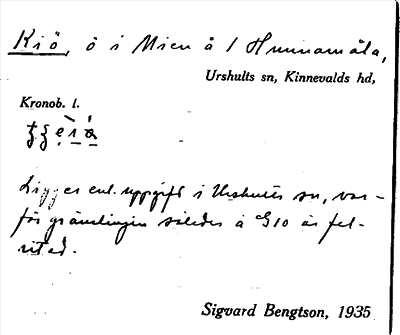 Kiö, ö i Mien å / Hunnamåla,
Urshults sn, Kinnevalds hd,
Kronob. l.
Ligger enl. uppgift i Urshults sn, var-
för gränslinjen således å G10 är fel-
ritad.
Sigvard Bengtson, 1935